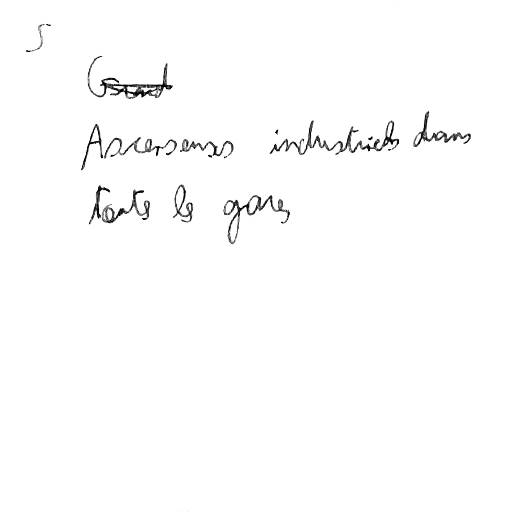 5
Grand
Ascenseurs industriels dans
toutes les gares